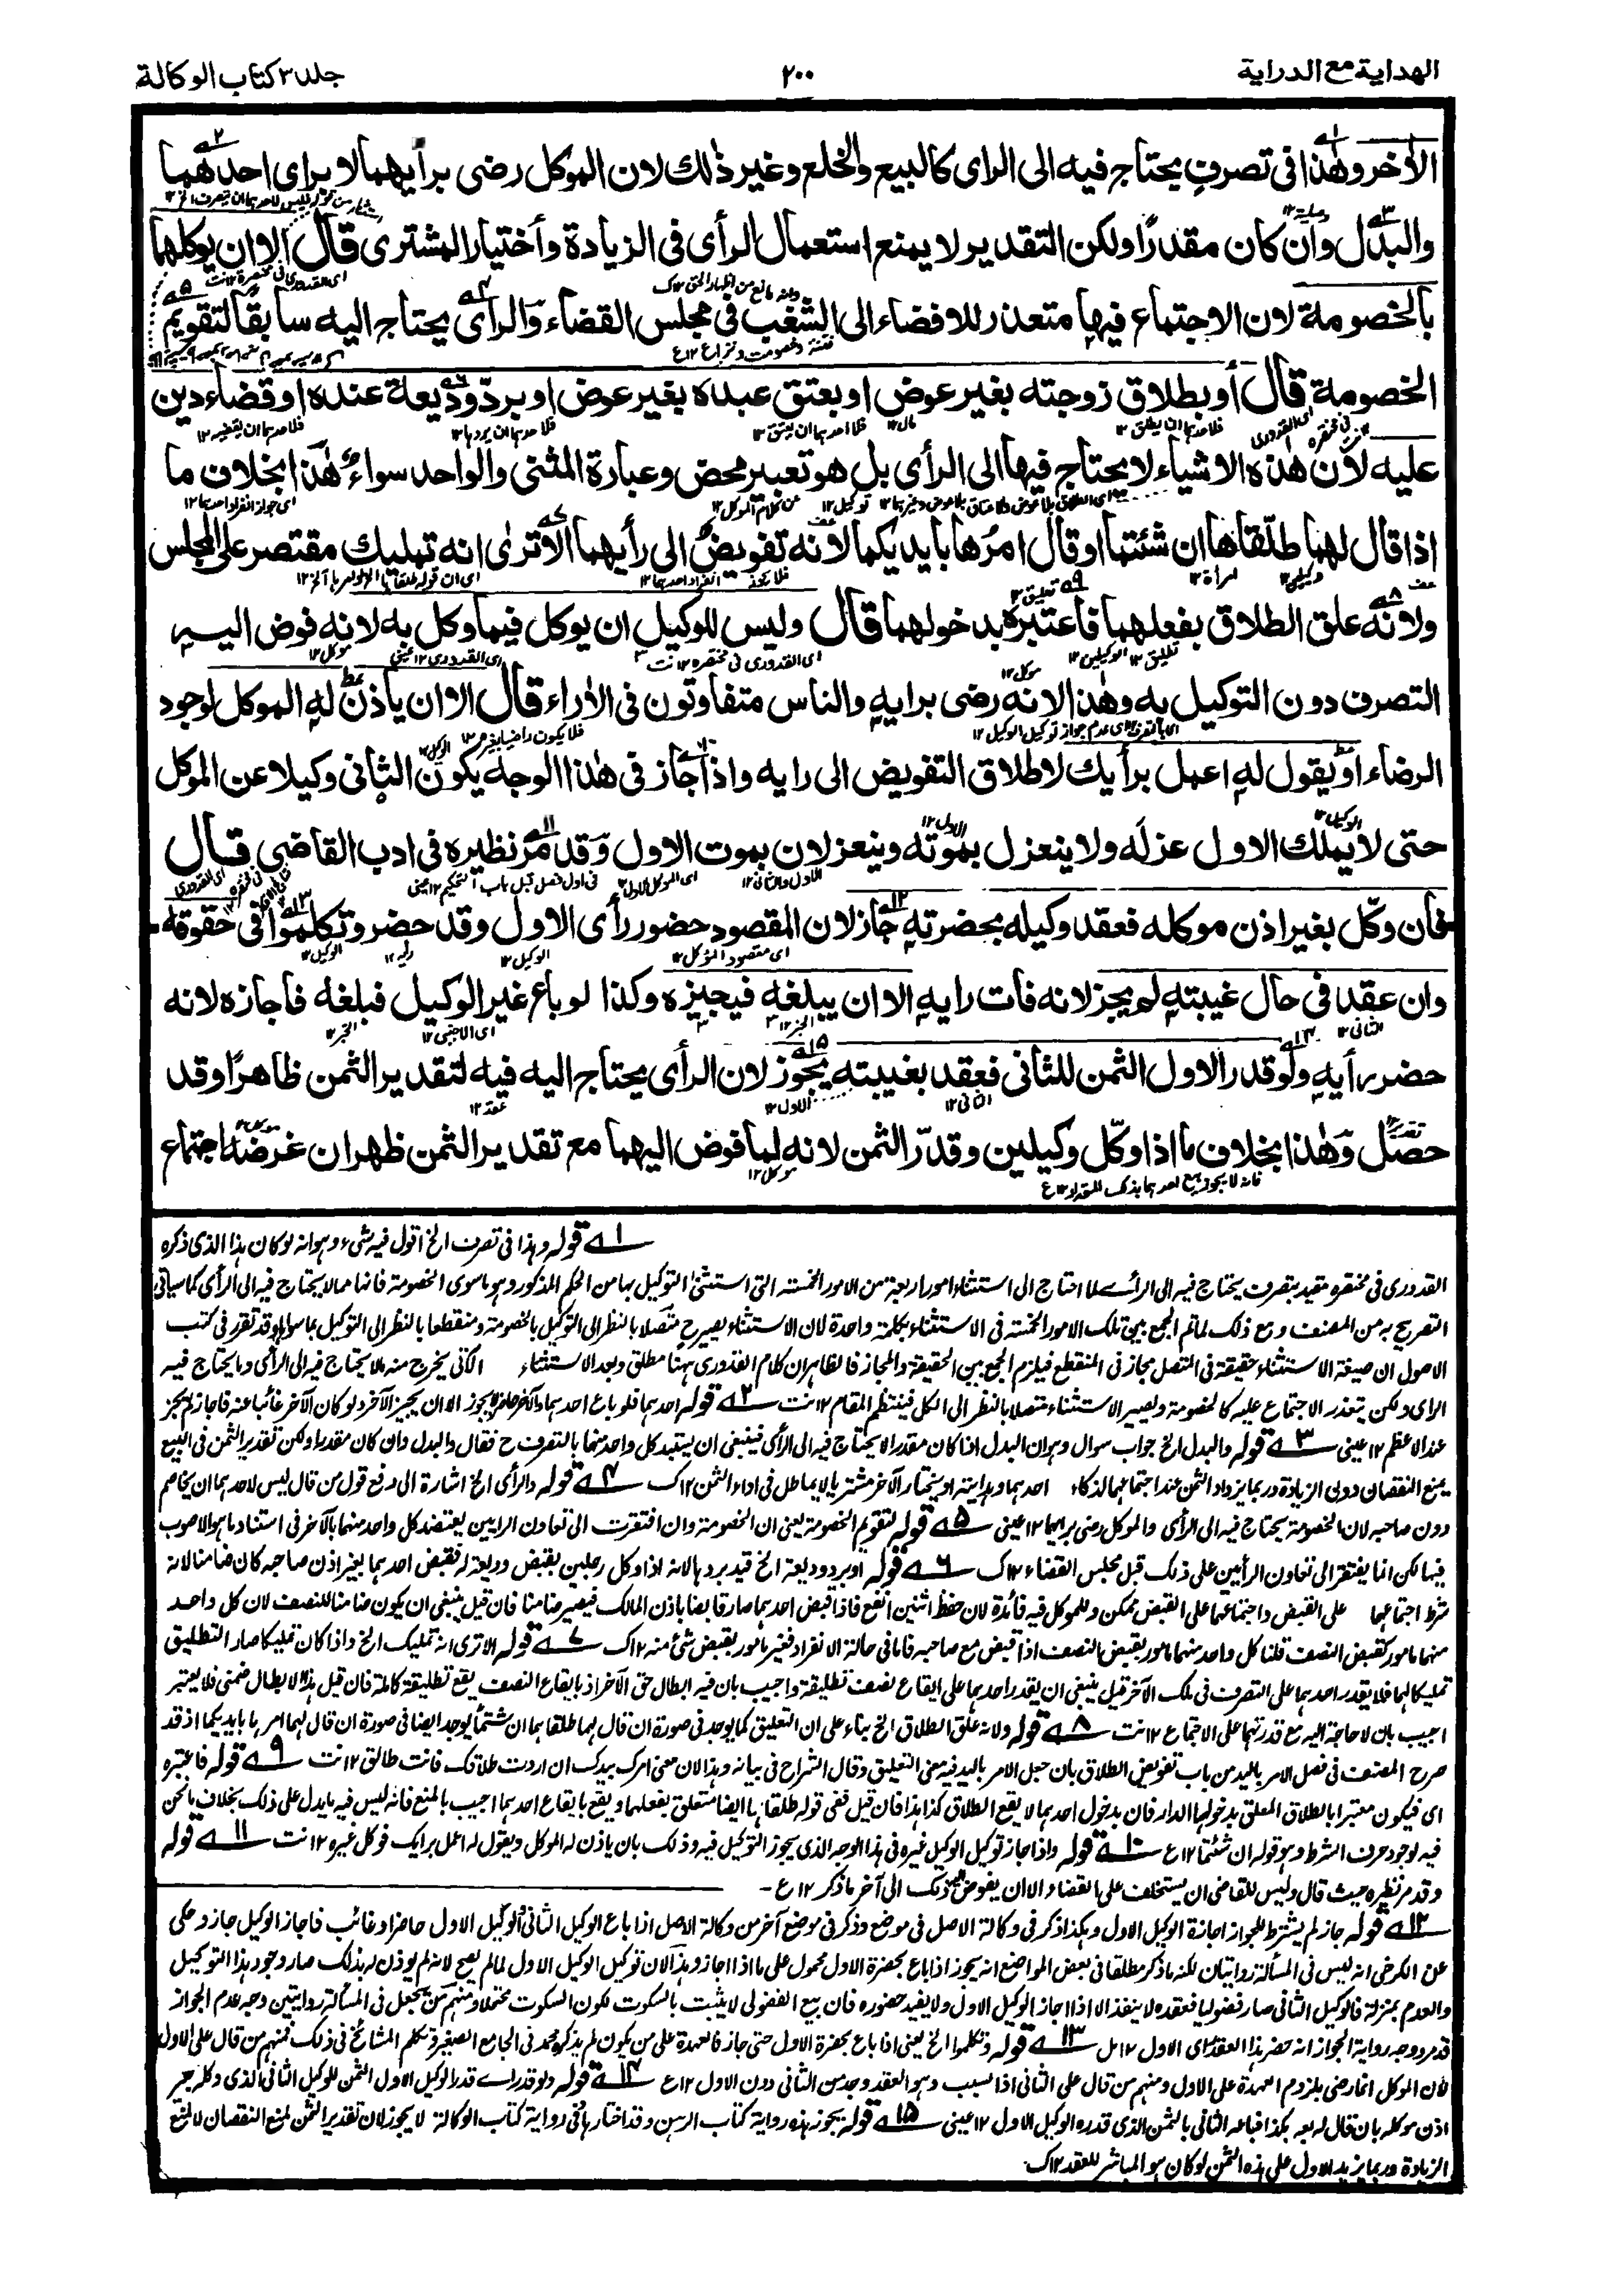 الهداية مع الدراية
٢٠٠
جلد ٣ كتاب الوكالة
الأخر وهذا فى تصرف يحتاج فيه الى الراى كالبيع والخلع وغير ذلك لان الموكل رضى برأيهما لا براى احدهما
والبدل وان كان مقدرًا ولكن التقدير لا يمنع استعمال الرأى فى الزيادة وأختيار المشترى قال الا ان يوكلهما
بالخصومة لان الاجتماع فيها متعذر للافضاء الى الشغب فى مجلس القضاء والرأى يحتاج اليه سابقا لتقويم
الخصومة قال أو بطلاق زوجته بغير عوض او بعتق عبده بغير عوض او برد وديعة عنده او قضاء دين
عليه لان هذه الاشياء لا يحتاج فيها الى الرأى بل هو تعبير محض وعبارة المثنى والواحد سواء هذا بخلاف ما
اذا قال لهما طلّقاها ان شئتما او قال امرها بايديكما لانه تفويض الى رأيهما الا ترى انه تمليك مقتصر على المجلس
ولانه علق الطلاق بفعلهما فاعتبره بدخولهما قال وليس للوكيل ان يوكل فيما وكل به لانه فوض اليه
التصرف دون التوكيل به وهذا لانه رضى برايه والناس متفاوتون فى الأراء قال الا ان ياذن له الموكل لوجود
الرضاء او يقول له اعمل برأيك لاطلاق التفويض الى رايه واذا جاز فى هذا الوجه يكون الثانى وكيلا عن الموكل
حتى لا يملك الاول عزله ولا ينعزل بموته وينعزلان بموت الاول وقد مر نظيره فى ادب القاضى قال
فان وكّل بغير اذن موكله فعقد وكيله بحضرته جاز لان المقصود حضور رأى الاول وقد حضر وتكلموا فى حقوقه
وان عقد فى حال غيبته لم يجز لانه فات رايه الا ان يبلغه فيجيزه وكذا لو باع غير الوكيل فبلغه فاجازه لانه
حضر رأيه ولو قدر الاول الثمن للثانى فعقد بغيبته يجوز لان الرأى يحتاج اليه فيه لتقدير الثمن ظاهرًا وقد
حصل وهذا بخلاف ما اذا وكّل وكيلين وقدّر الثمن لانه لما فوض اليهما مع تقدير الثمن ظهر ان غرضه اجتماع
١ قوله وهذا فى تصرف الخ اقول فيه شىء وهو انه لو كان هذا الذى ذكره
القدورى فى مختصره مقيد بتصرف يحتاج فيه الى الرأے لما احتاج الى استثناء امور اربعة من الامور الخمسة التى استثنى التوكيل بها من الحكم المذكور وهو ما سوى الخصومة فانها مما لا يحتاج فيه الى الرأى كما سياتى
التصريح به من المصنف ومع ذلك لما تم الجمع بين تلك الامور الخمسة فى الاستثناء بكلمة واحدة لان الاستثناء يصير ح متصلا بالنظر الى التوكيل بالخصومة ومنقطعا بالنظر الى التوكيل بما سواها وقد تقرر فى كتب
الاصول ان صيغة الاستثناء حقيقة فى المتصل مجاز فى المنقطع فيلزم الجمع بين الحقيقة والمجاز فالظاهر ان كلام القدورى ههنا مطلق وبعد الاستثناء الكلى يخرج منه ما لا يحتاج فيه الى الرأى وما يحتاج فيه
الراى ولكن يتعذر الاجتماع عليه كالخصومة ويصير الاستثناء متصلا بالنظر الى الكل فينتظم المقام ١٢ نت ٢ قوله احدهما فلو باع احدهما والآخر حاضر لا يجوز الا ان يجيز الآخر ولو كان الآخر غائبا عنه فاجاز لم يجز
عند الاعظم ١٢ عينى ٣ قوله والبدل الخ جواب سوال وهو ان البدل اذا كان مقدرا لا يحتاج فيه الى الرأى فينبغى ان يستبد كل واحد منهما بالتصرف ح فقال والبدل وان كان مقدرا ولكن تقدير الثمن فى البيع
يمنع النقصان دون الزيادة وربما يزداد الثمن عند اجتماعهما لذكاء احدهما وهدايته او يختار الآخر مشتريا لا يماطل فى اداء الثمن ١٢ ك ٤ قوله والرأى الخ اشارة الى رفع قول من قال ليس لاحدهما ان يخاصم
دون صاحبه لان الخصومة يحتاج فيه الى الرأى والموكل رضى برايهما ١٢ عينى ٥ قوله لتقويم الخصومة يعنى ان الخصومة وان افتقرت الى تعاون الرايين يعتضد كل واحد منهما بالآخر فى استناد ما هو الاصوب
فيها لكن انما يفتقر الى تعاون الرأيين على ذلك قبل مجلس القضاء ١٢ ك ٦ قوله او برد وديعة الخ قيد بردها لانه اذا وكل رجلين بقبض وديعة له فقبض احدهما بغير اذن صاحبه كان ضامنا لانه
شرط اجتماعهما على القبض واجتماعهما على القبض ممكن وللموكل فيه فائدة لان حفظ اثنين انفع فاذا قبض احدهما صار قابضا باذن المالك فيصير ضامنا فان قيل ينبغى ان يكون ضامنا للنصف لان كل واحد
منهما مامور بقبض النصف قلنا كل واحد منهما مامور بقبض النصف اذا قبض مع صاحبه فاما فى حالة الانفراد فغير مامور بقبض شئ منه ١٢ ك ٧ قوله الا ترى انه تمليك الخ واذا كان تمليكا صار التطليق
تمليكا لهما فلا يقدر احدهما على التصرف فى ملك الآخر قيل ينبغى ان يقدر احدهما على ايقاع نصف تطليقة واجيب بان فيه ابطال حق الآخر اذ بايقاع النصف يقع تطليقة كاملة فان قيل هذا الابطال ضمنى فلا يعتبر
اجيب بان لا حاجة اليه مع قدرتهما على الاجتماع ١٢ نت ٨ قوله ولانه علق الطلاق الخ بناء على ان التعليق كما يوجد فى صورة ان قال لهما طلقاها ان شئتما يوجد ايضا فى صورة ان قال لهما امرها بايديكما اذ قد
صرح المصنف فى فصل الامر باليد من باب تفويض الطلاق بان جعل الامر باليد فيه معنى التعليق وقال الشراح فى بيانه وهذا لان معنى امرك بيدك ان اردت طلاقك فانت طالق ١٢ نت ٩ قوله فاعتبره
اى فيكون معتبرا بالطلاق المعلق بدخولهما الدار فان بدخول احدهما لا يقع الطلاق كذا هذا فان قيل ففى قوله طلقاها ايضا متعلق بفعلهما ويقع بايقاع احدهما اجيب بالمنع فانه ليس فيه ما يدل على ذلك بخلاف ما نحن
فيه لوجود حرف الشرط وهو قوله ان شئتما ١٢ ع ١٠ قوله واذا جاز توكيل الوكيل غيره فى هذا الوجه الذى يجوز التوكيل فيه وذلك بان ياذن له الموكل ويقول له اعمل برايك فوكل غيره ١٢ نت ١١ قوله
وقد مر نظيره حيث قال وليس للقاضى ان يستخلف على القضاء الا ان يفوض اليه ذلك الى آخر ما ذكر ١٢ ع
١٢ قوله جاز لم يشترط للجواز اجازة الوكيل الاول وهكذا ذكر فى وكالة الاصل فى موضع وذكر فى موضع آخر من وكالة الاصل اذا باع الوكيل الثانى والوكيل الاول حاضر او غائب فاجاز الوكيل جاز وحكى
عن الكرخى انه ليس فى المسألة روايتان لكنه ما ذكر مطلقا فى بعض المواضع انه يجوز اذا باع بحضرة الاول محمول على ما اذا اجاز وهذا لان توكيل الوكيل الاول لما لم يصح لانه لم يوذن له بذلك صار وجود هذا التوكيل
والعدم بمنزلة فالوكيل الثانى صار فضوليا فعقده لا ينفذ الا اذا اجاز الوكيل الاول ولا يفيد حضوره فان بيع الفضولى لا يثبت بالسكوت لكون السكوت محتملا ومنهم من يجعل فى المسألة روايتين وجه عدم الجواز
قد مر ووجه رواية الجواز انه حضر هذا العقد راى الاول ١٢ مل ١٣ قوله وتكلموا الخ يعنى اذا باع بحضرة الاول حتى جاز فالعهدة على من يكون لم يذكره محمد فى الجامع الصغير وتكلم المشائخ فى ذلك فمنهم من قال على الاول
لان الموكل انما رضى بلزوم العهدة على الاول ومنهم من قال على الثانى اذ السبب وهو العقد وجد من الثانى دون الاول ١٢ ع ١٤ قوله ولو قدر اے قدر الوكيل الاول الثمن للوكيل الثانى الذى وكله بغير
اذن موكله بان قال له بعه بكذا فباعه الثانى بالثمن الذى قدره الوكيل الاول ١٢ عينى ١٥ قوله يجوز هذه رواية كتاب الرهن وقد اختارها فى رواية كتاب الوكالة لا يجوز لان تقدير الثمن لمنع النقصان لا لمنع
الزيادة وربما يزيد الاول على هذه الثمن لو كان هو المباشر للعقد ١٢ ك